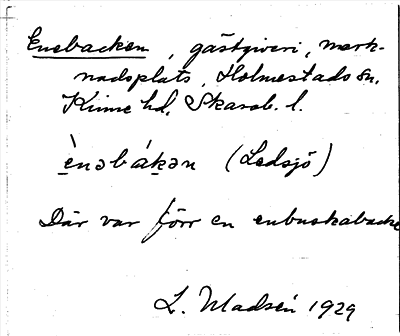 Enebacken, gästgiveri, mark-
nadsplats, Holmestads sn,
Kinne hd, Skarab. l.
è̱nəbáḵən (Ledsjö)
Där var förr en enbuskabacke
L. Madsén 1929